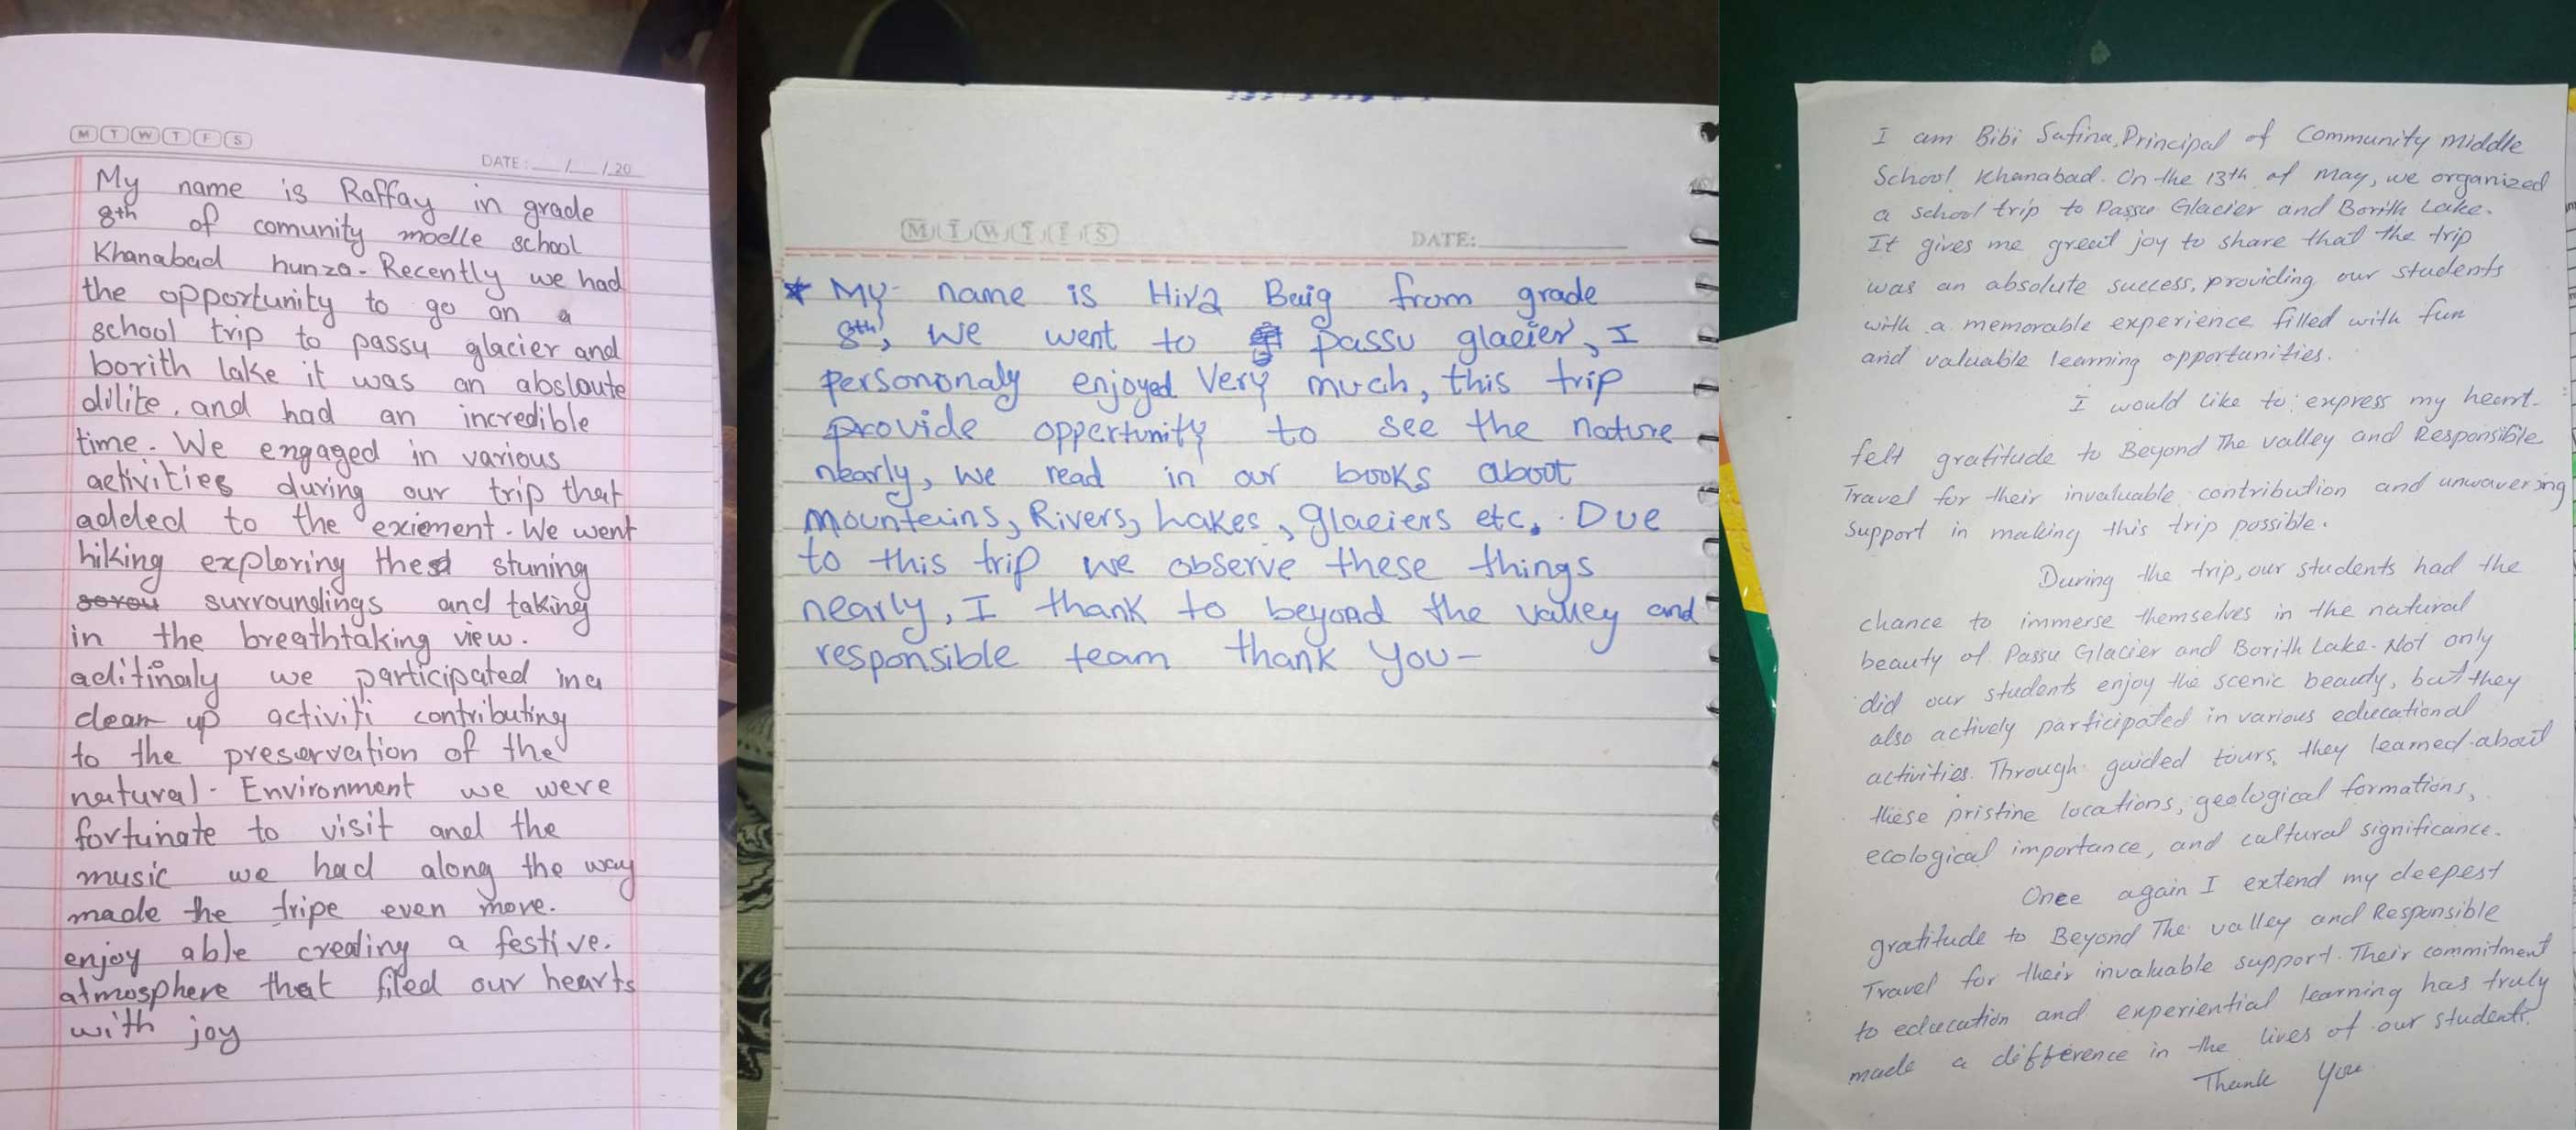 M T W T F S
DATE: __/__/20
My name is Raffay in grade
8th of comunity moelle school
Khanabad hunza. Recently we had
the opportunity to go an a
school trip to passy glacier and
borith lake it was an absloute
dilite, and had an incredible
time. We engaged in various
activities during our trip that
added to the exciement. We went
hiking exploring the stuning
surroundings and taking
in the breathtaking view.
aditinaly we participated in a
clean up activiti contributing
to the preservation of the
natural. Environment we were
fortunate to visit and the
music we had along the way
made the tripe even more.
enjoy able creating a festive.
atmosphere that filed our hearts
with joy
M T W T F S
DATE:
* My name is Hira Baig from grade
8th, we went to passu glacier, I
persononaly enjoyed Very much, this trip
provide oppertunity to see the nature
nearly, we read in our books about
mountains, Rivers, Lakes, glaciers etc. Due
to this trip we observe these things
nearly, I thank to beyond the valley and
responsible team thank you-
I am Bibi Safina, Principal of Community Middle
School Khanabad. On the 13th of May, we organized
a school trip to Passu Glacier and Borith Lake.
It gives me great joy to share that the trip
was an absolute success, providing our students
with a memorable experience filled with fun
and valuable learning opportunities.
I would like to express my heart-
felt gratitude to Beyond The valley and Responsible
Travel for their invaluable contribution and unwavering
support in making this trip possible.
During the trip, our students had the
chance to immerse themselves in the natural
beauty of Passu Glacier and Borith Lake. Not only
did our students enjoy the scenic beauty, but they
also actively participated in various educational
activities. Through guided tours, they learned about
these pristine locations, geological formations,
ecological importance, and cultural significance.
Once again I extend my deepest
gratitude to Beyond The valley and Responsible
Travel for their invaluable support. Their commitment
to education and experiential learning has truly
made a difference in the lives of our students.
Thank You